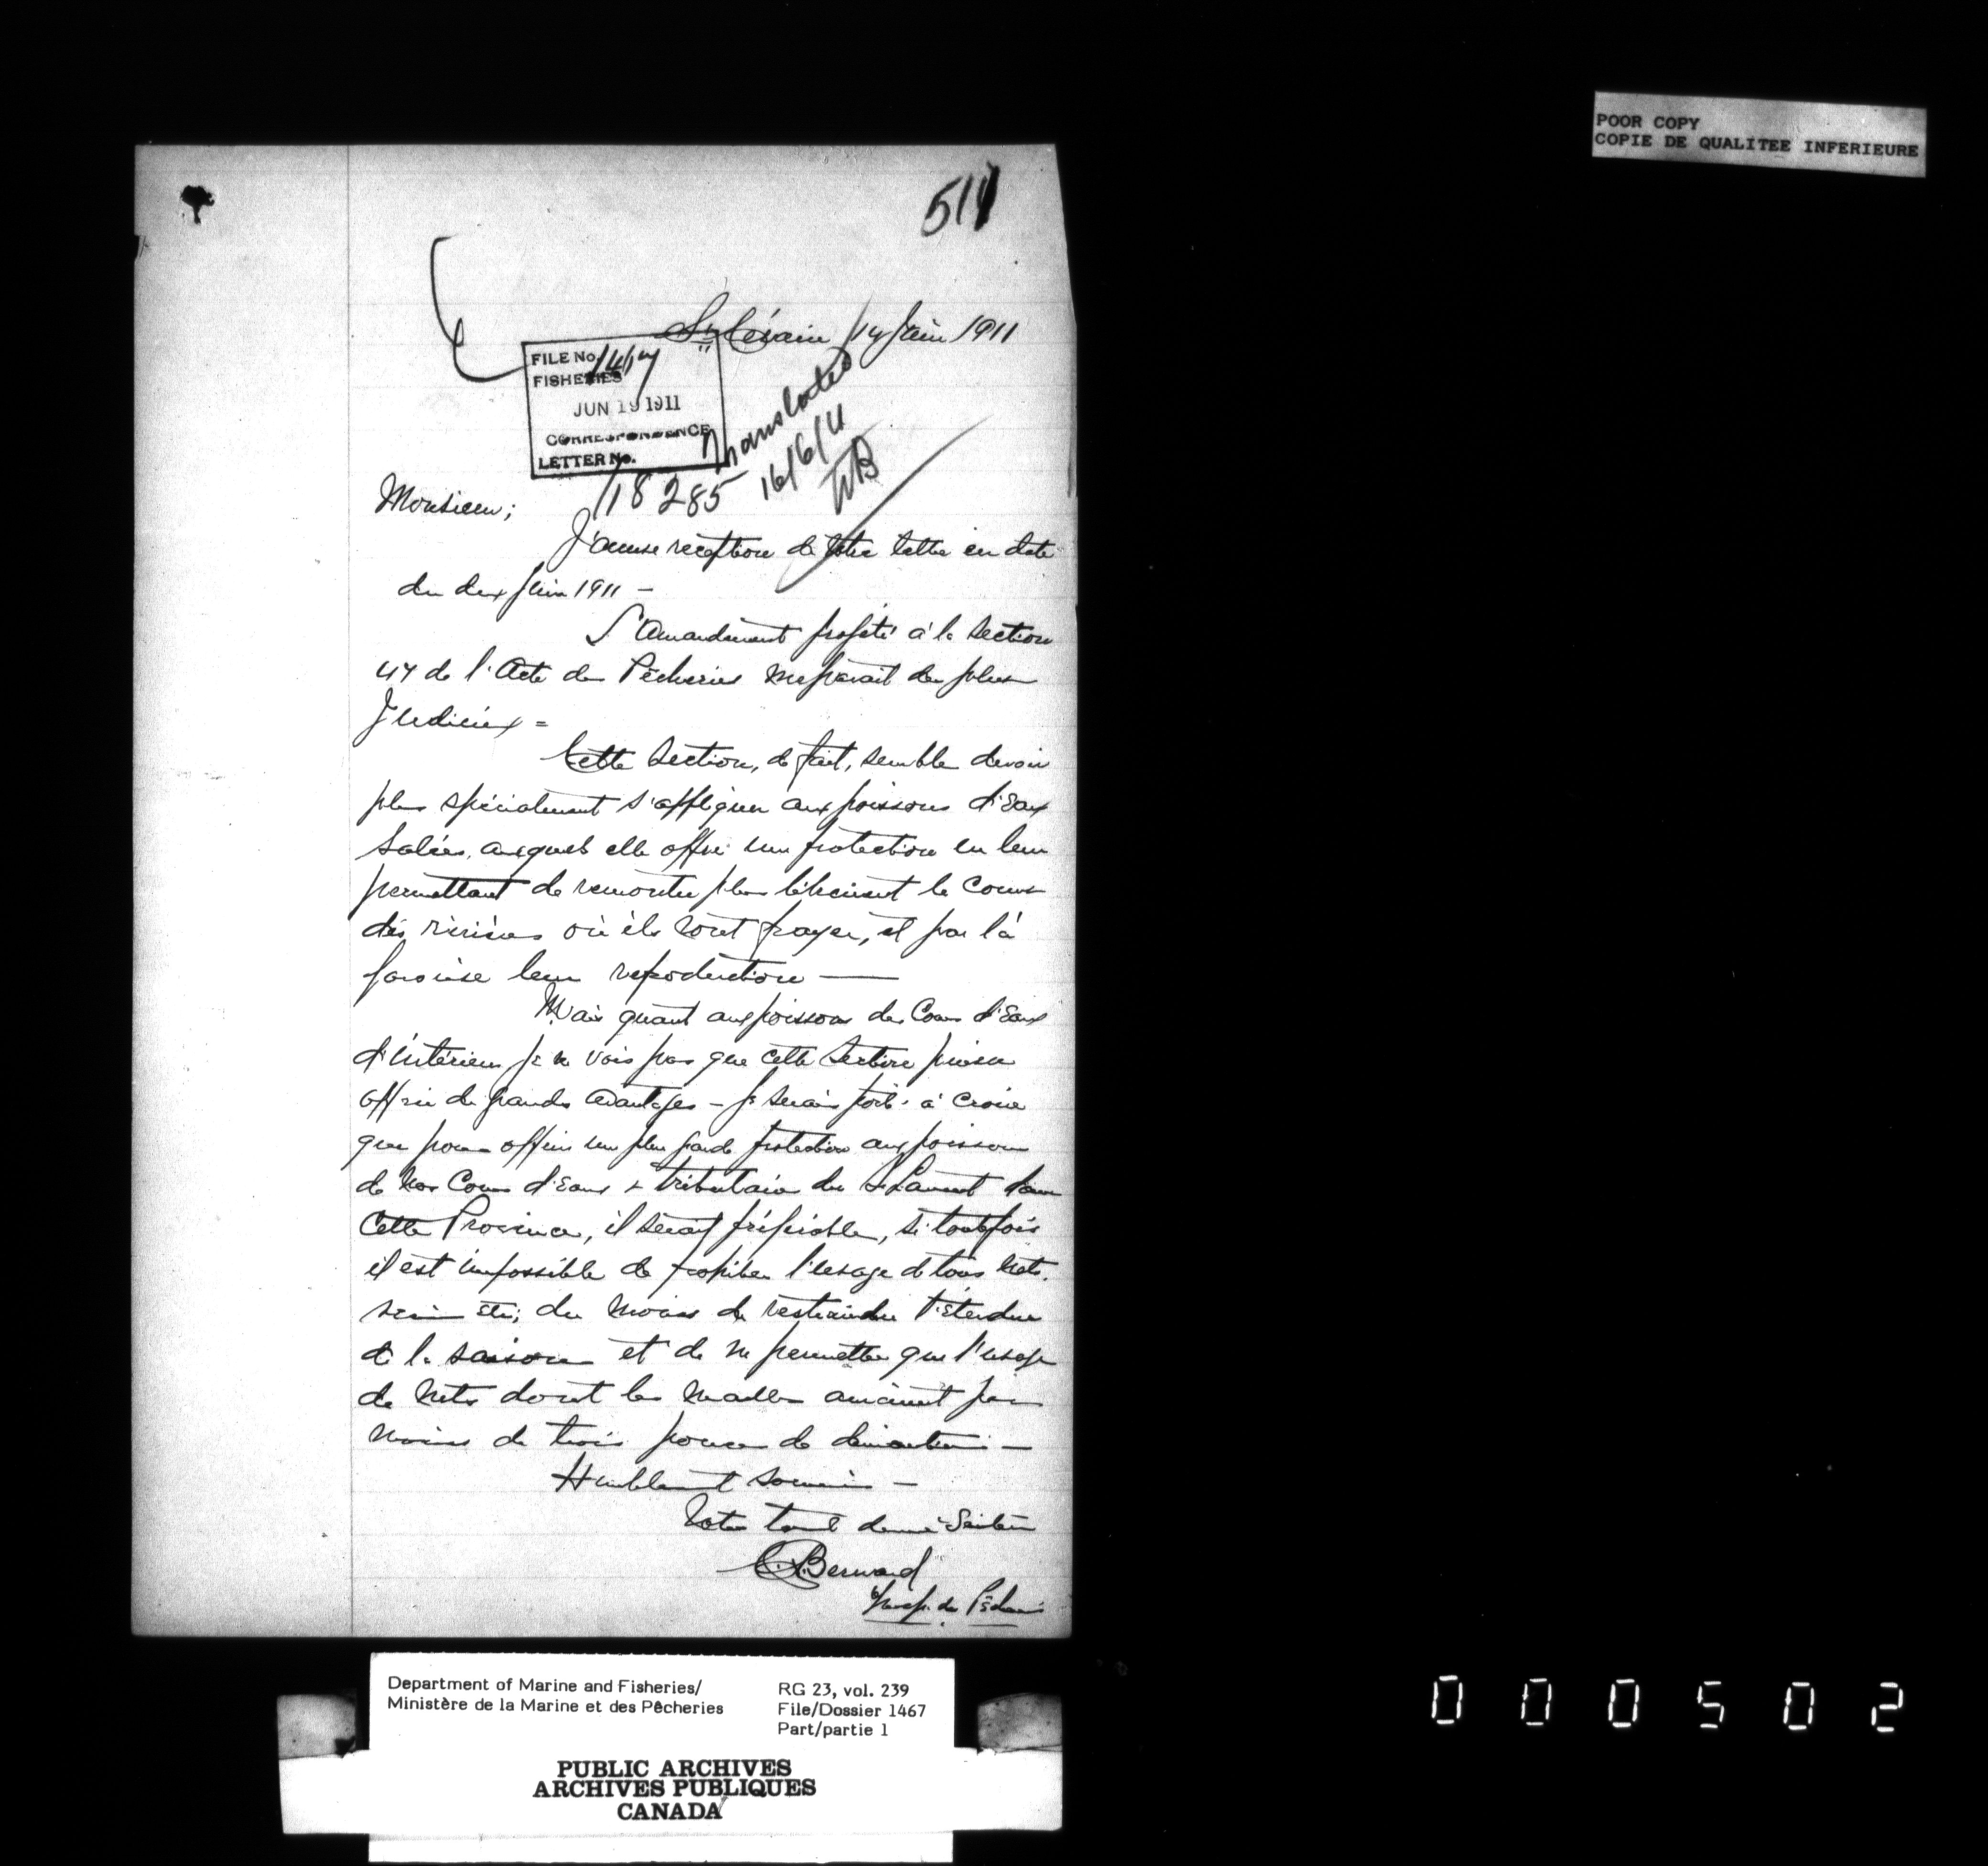 POOR COPY
COPIE DE QUALITEE INFERIEURE
511
St Césaire 14 Juin 1911
FILE No. 1467
FISHERIES
JUN 19 1911
CORRESPONDENCE
LETTER No.
118285
Translated
16/6/11
Monsieur;
J'accuse reception de votre lettre en date
du deux Juin 1911 —
L'Amandement projeté à la Section
47 de l'Acte des Pêcheries me parait des plus
Judicieux =
Cette Section, de fait, semble devoir
plus spécialement s'appliquer aux poissons d'Eaux
Salées, auxquels elle offre une protection en leur
permettant de remonter plus librement le Cours
des rivières où ils vont frayer, et par là
favorise leur reproduction —
Mais quant aux poissons des Cours d'Eaux
d'intérieur je ne vois pas que cette Section puisse
offrir de grands avantages — je serais porté à croire
que pour offrir une plus grande protection aux poissons
de nos Cours d'Eaux & tributaires du St Laurent dans
Cette Province, il serait préférable, si toutefois
il est impossible de prohiber l'usage de tous nets,
seine etc; du moins de restraindre l'étendue
de la saison et de ne permettre que l'usage
de nets dont les mailles auraient pas
moins de trois pouces de
Humblement soumis —
Votre tout dévoué Serviteur
Bernard
Insp. des Pêcheries
Department of Marine and Fisheries/
Ministère de la Marine et des Pêcheries
RG 23, vol. 239
File/Dossier 1467
Part/partie 1
PUBLIC ARCHIVES
ARCHIVES PUBLIQUES
CANADA
000502